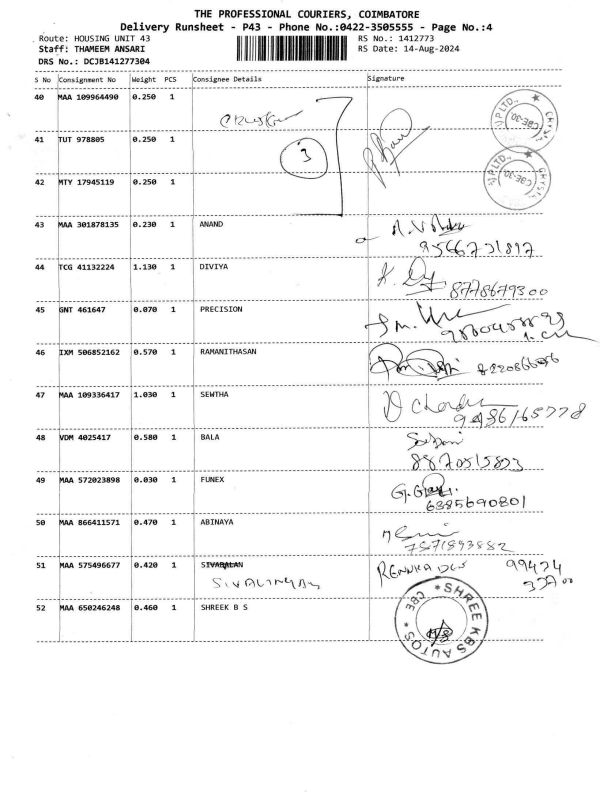 THE PROFESSIONAL COURIERS, COIMBATORE
Delivery Runsheet - P43 - Phone No.:0422-3505555 - Page No.:4
Route: HOUSING UNIT 43 RS No.: 1412773
Staff: THAMEEM ANSARI RS Date: 14-Aug-2024
DRS No.: DCJB141277304
S No Consignment No Weight PCS Consignee Details Signature
40 MAA 109964490 0.250 1
3
41 TUT 978805 0.250 1
42 MTY 17945119 0.250 1
43 MAA 301878135 0.230 1 ANAND
9566731817
44 TCG 41132224 1.130 1 DIVIYA
8778679300
45 GNT 461647 0.070 1 PRECISION
46 IXM 506852162 0.570 1 RAMANITHASAN
47 MAA 109336417 1.030 1 SEWTHA
9486165778
48 VDM 4025417 0.580 1 BALA
49 MAA 572023898 0.030 1 FUNEX
6385690801
50 MAA 866411571 0.470 1 ABINAYA
7871893882
51 MAA 575496677 0.420 1 SIVABALAN
52 MAA 650246248 0.460 1 SHREEK B S
* SHREE KBS AUTOS * CBE